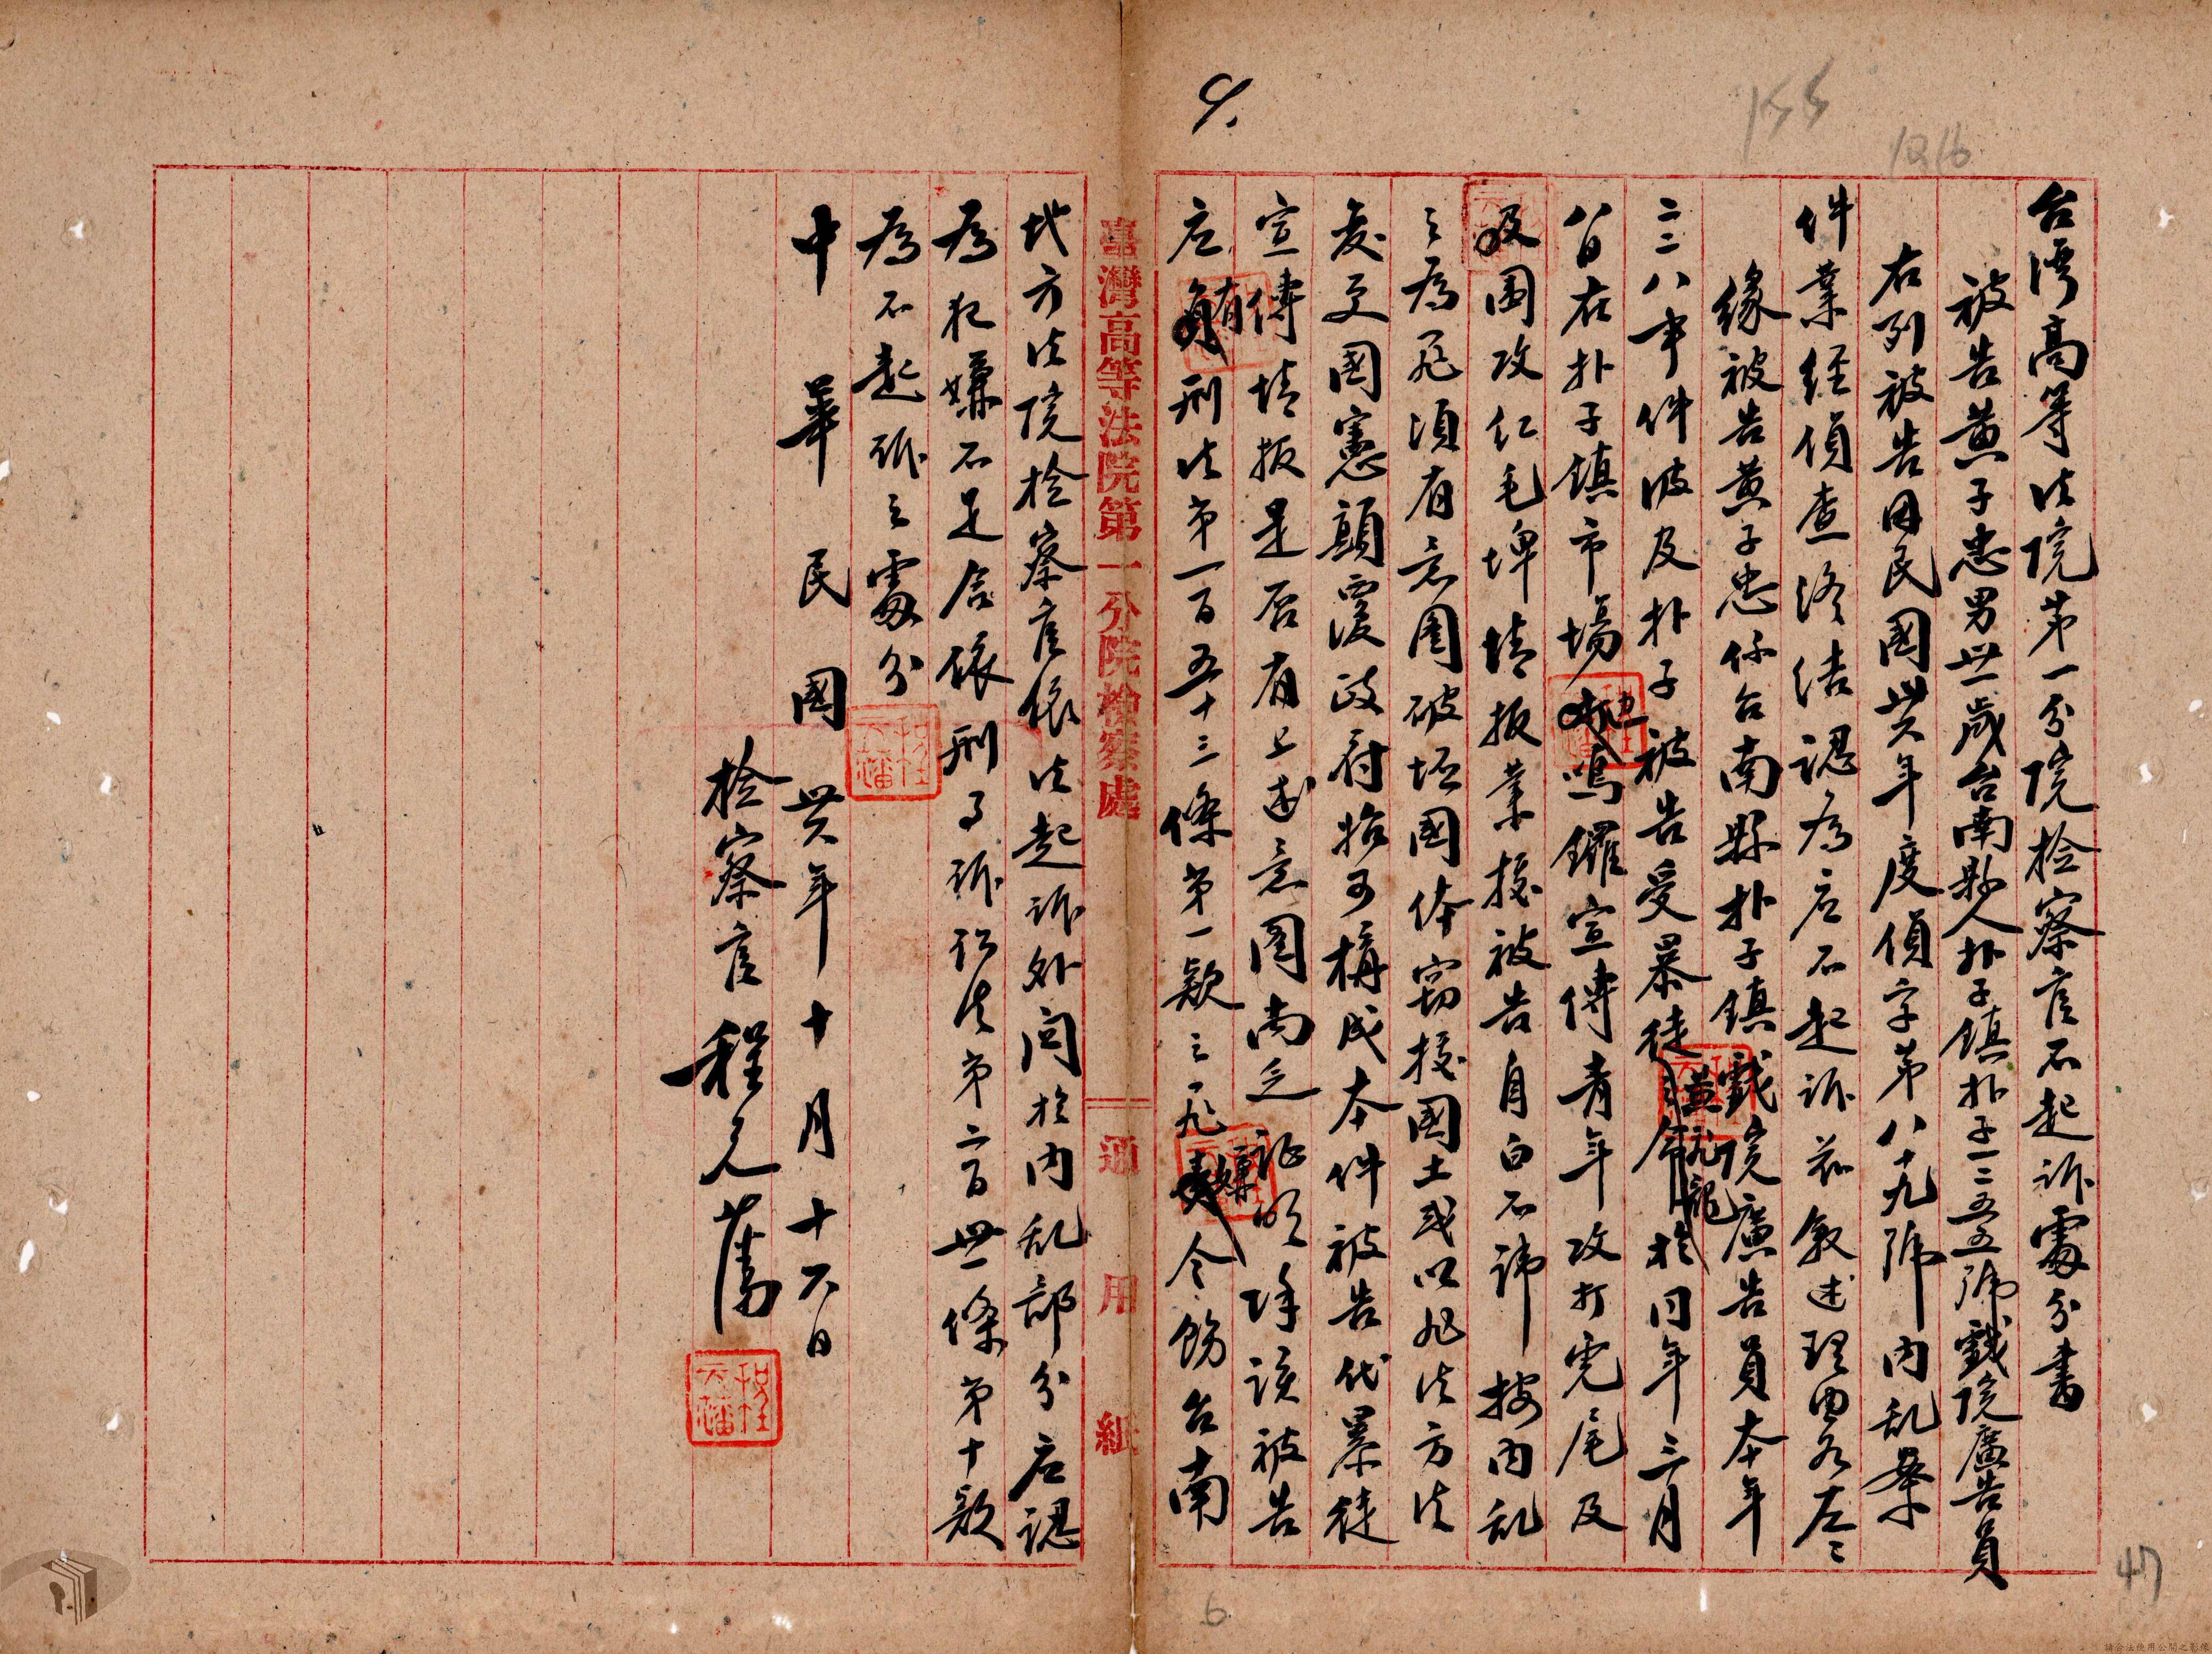 155
1216
9.
台湾高等法院第一分院檢察官不起訴處分書
被告黃子忠男卅一歲台南縣人朴子鎮朴子一二五五號戲院廣告員
右列被告因民國卅六年度偵字第八十九號內乱案
件業經偵查終結認為应不起訴茲敘述理由如左
緣被告黃子忠係台南縣朴子鎮戲院廣告員本年
二二八事件波及朴子被告受暴徒並於同年三月
八日在朴子鎮市場鳴鑼宣傳青年攻打虎尾及
及圍攻紅毛埤情报業據被告自白不諱按內乱
之為罪須有意图破坏國体竊據國土或以非法方法
変更國憲顛覆政府始可構成本件被告代暴徒
宣傳情报是否有上述意图尚乏証明除該被告
应有刑法第一百五十三條第一款之罪嫌令飭台南
臺灣高等法院第一分院檢察處 通用紙
地方法院檢察官依法起訴外関於內乱部分应認
為犯嫌不足合依刑事訴訟法第二百卅一條第十款
為不起訴之處分
中華民國卅六年十月十六日
檢察官程元藩
47
6
請合法使用公開之影像